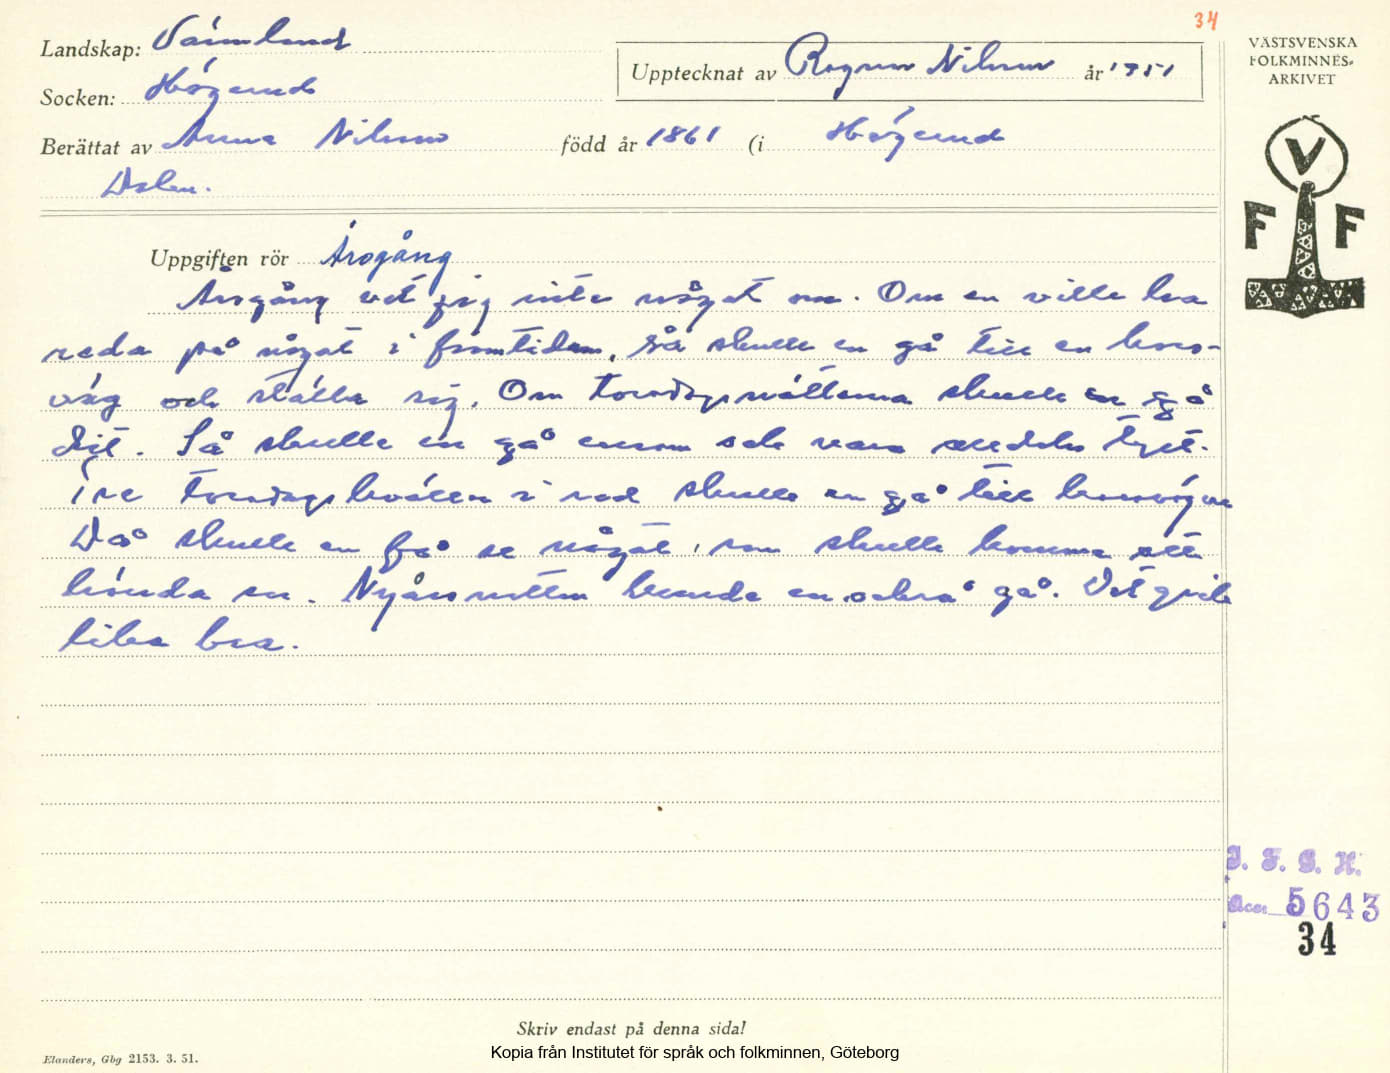 34
Landskap: Värmland
Upptecknat av Ragnar Nilsson år 1951
VÄSTSVENSKA
FOLKMINNES-
ARKIVET
Socken: Högerud
Berättat av Anna Nilsson född år 1861 (i Högerud
Dalen.
V
F F
Uppgiften rör Årsgång
Årsgång vet jag inte något om. Om en ville ha
reda på något i framtiden, så skulle en gå till en kors-
väg och ställa sig. Om torsdagsnätterna skulle en gå
dit. Så skulle en gå ensom och vara alldeles tyst.
Tre torsdagskvällar i rad skulle en gå till korsvägen
Då skulle en få se något, som skulle komma att
hända en. Nyårsnatten kunde en också gå. Det gick
lika bra.
I. F. G. H.
Acc. 5643
34
Skriv endast på denna sida!
Elanders, Gbg 2153. 3. 51.
Kopia från Institutet för språk och folkminnen, Göteborg